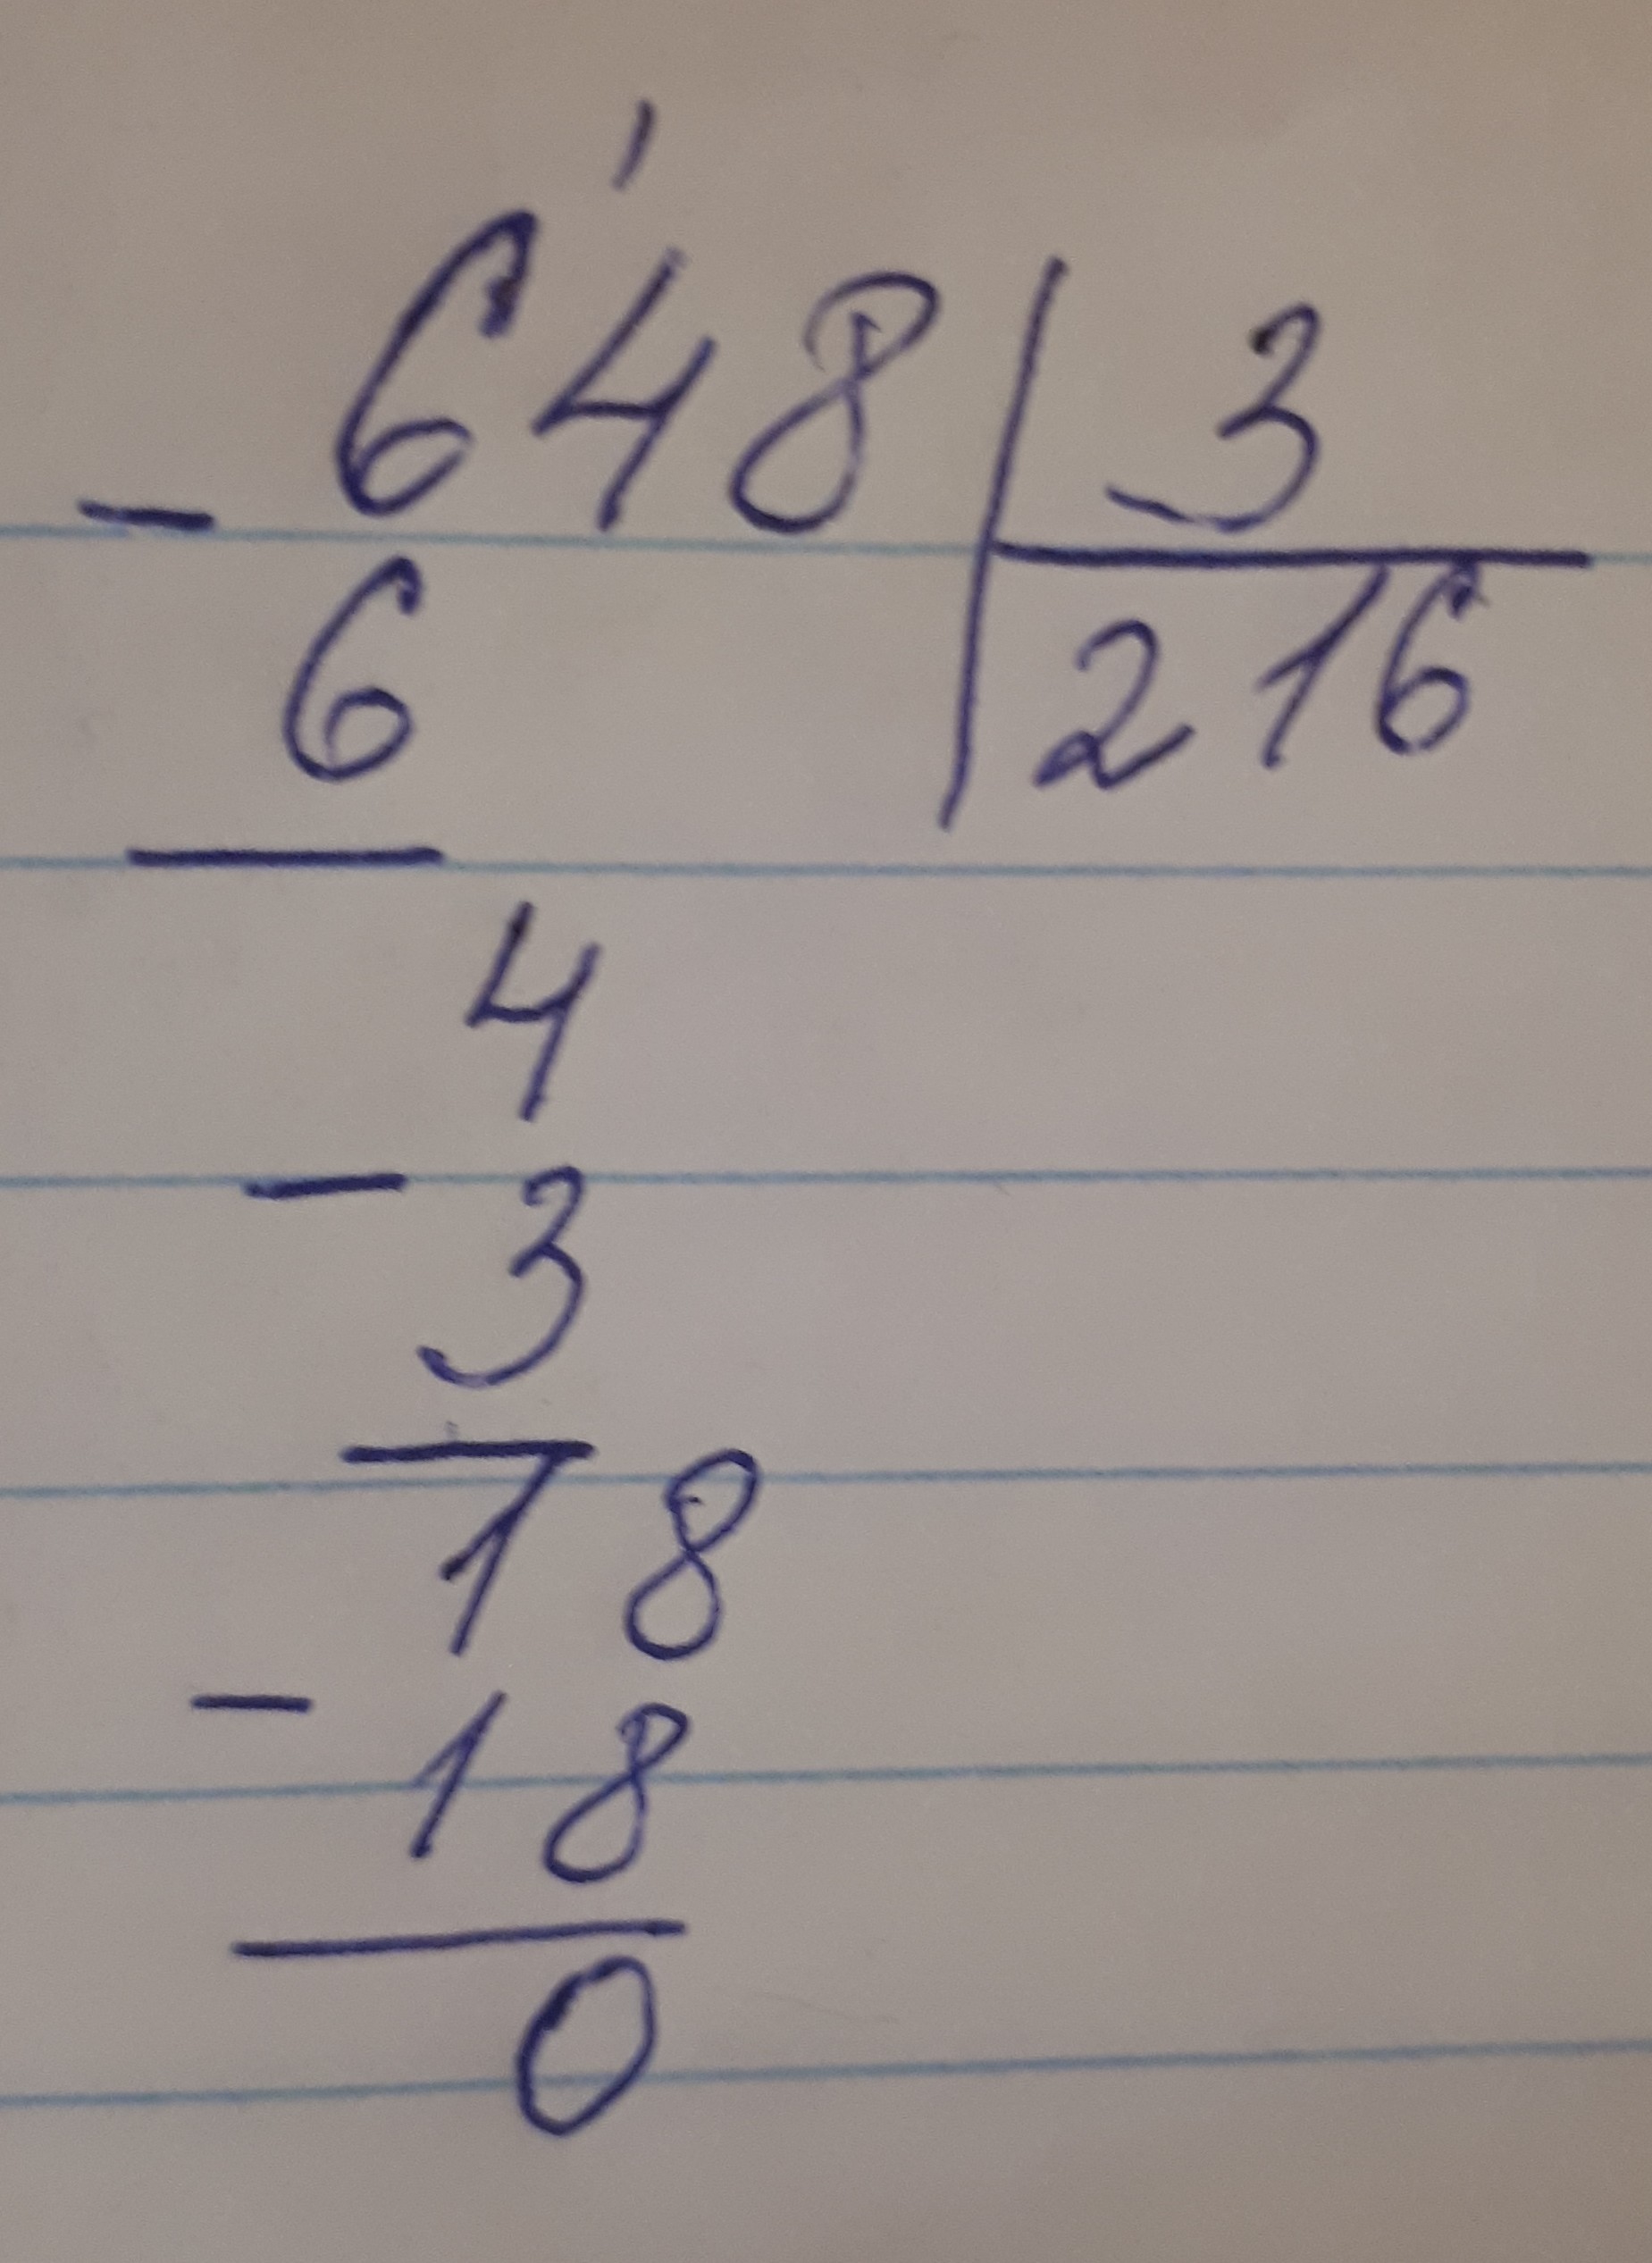 1
648 | 3
- 6 | 216
4
- 3
18
- 18
0